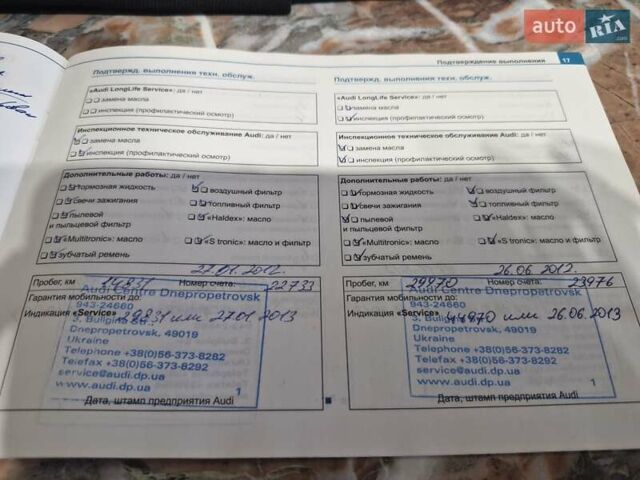 auto RIA .com
Подтверждение выполнения 17
Подтвержд. выполнения техн. обслуж.
«Audi LongLife Service»: да / нет
замена масла
инспекция (профилактический осмотр)
Инспекционное техническое обслуживание Audi: да / нет
замена масла
инспекция (профилактический осмотр)
Дополнительные работы: да / нет
тормозная жидкость воздушный фильтр
свечи зажигания топливный фильтр
пылевой «Haldex»: масло
и пыльцевой фильтр
«Multitronic»: масло «S tronic»: масло и фильтр
зубчатый ремень
27.01.2012.
Пробег, км 14831 Номер счета: 22733
Гарантия мобильности до:
Индикация «Service» 29831 или 27.01 2013
Audi Centre Dnepropetrovsk
943-24660
3, Buligina Str.,
Dnepropetrovsk, 49019
Ukraine
Telephone +38(0)56-373-8282
Telefax +38(0)56-373-8292
service@audi.dp.ua
www.audi.dp.ua 1
Дата, штамп предприятия Audi
Подтвержд. выполнения техн. обслуж.
«Audi LongLife Service»: да / нет
замена масла
инспекция (профилактический осмотр)
Инспекционное техническое обслуживание Audi: да / нет
замена масла
инспекция (профилактический осмотр)
Дополнительные работы: да / нет
тормозная жидкость воздушный фильтр
свечи зажигания топливный фильтр
пылевой «Haldex»: масло
и пыльцевой фильтр
«Multitronic»: масло «S tronic»: масло и фильтр
зубчатый ремень
26.06 2012.
Пробег, км 29970 Номер счета: 23976
Гарантия мобильности до:
Индикация «Service» 44970 или 26.06.2013
Audi Centre Dnepropetrovsk
943-24660
3, Buligina Str.,
Dnepropetrovsk, 49019
Ukraine
Telephone +38(0)56-373-8282
Telefax +38(0)56-373-8292
service@audi.dp.ua
www.audi.dp.ua 1
Дата, штамп предприятия Audi